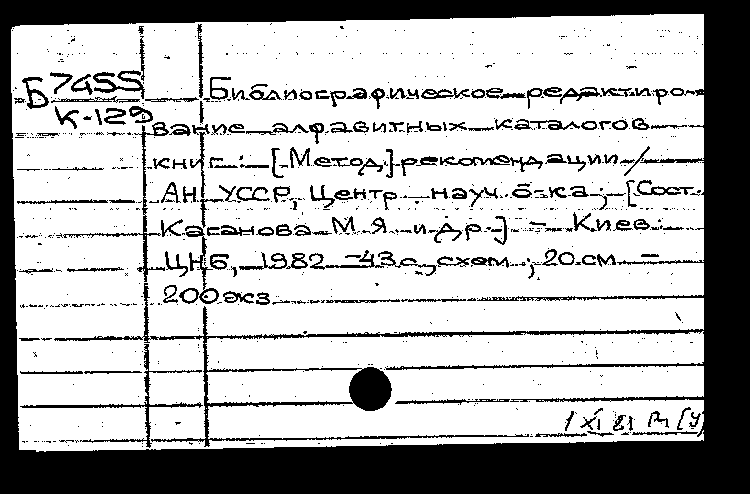 Б 7455
К-129
Библиографическое редактиро-
вание алфавитных каталогов
книг : [Метод.] рекомендации /
АН УССР, Центр. науч. б-ка ; [Сост.
Каганова М. Я. и др.] - Киев :
ЦНБ, 1982 -43 с., схем. ; 20 см. -
200 экз
1 XI